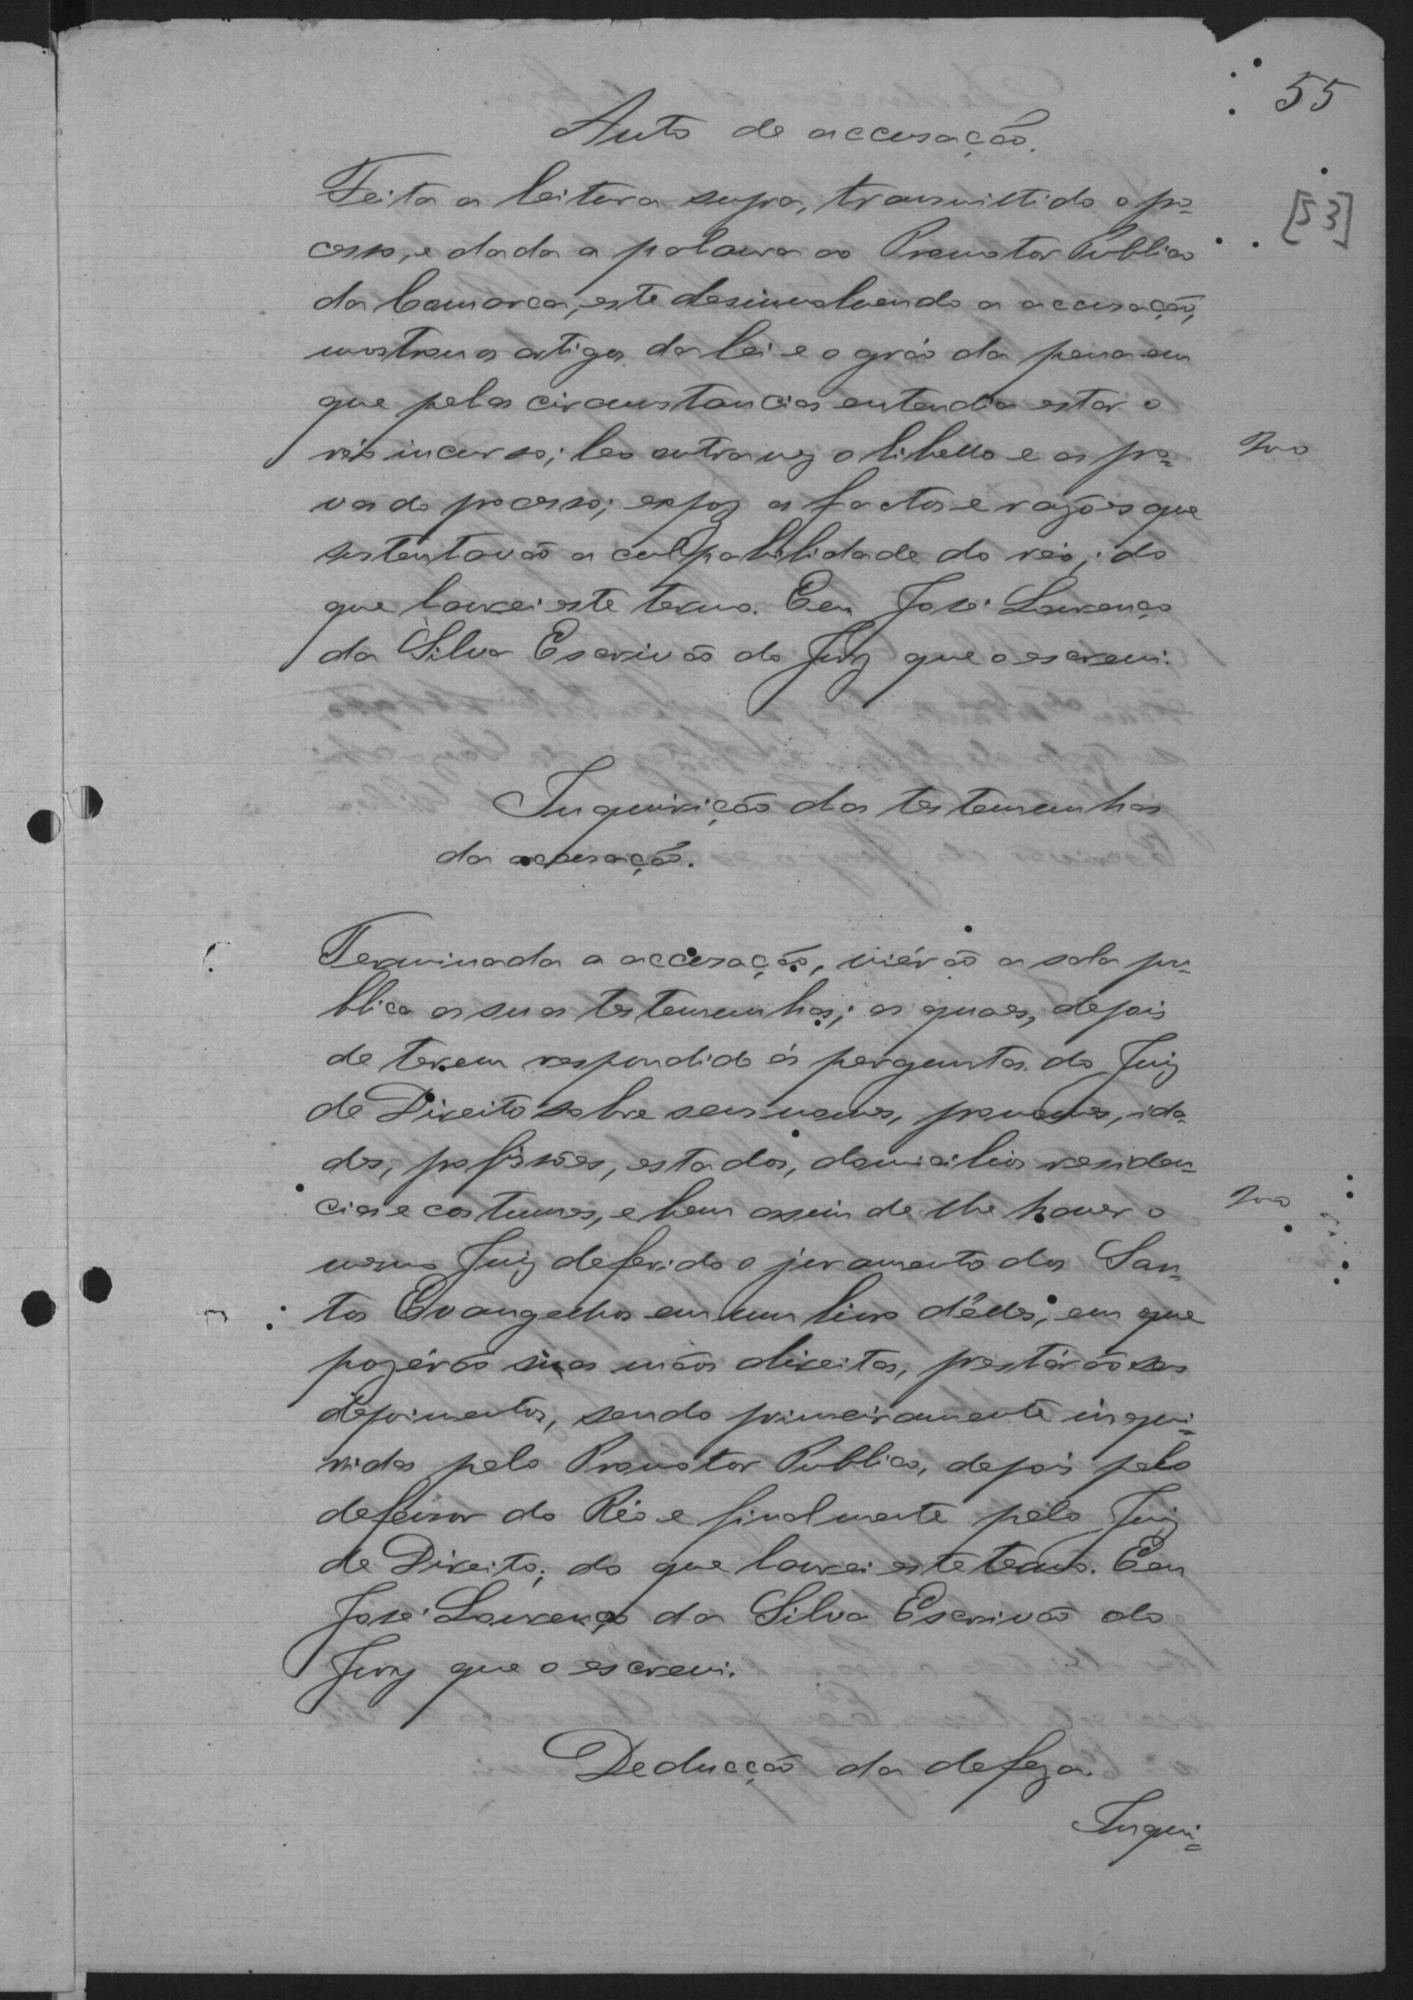 55
Auto de accusação.
Feita a leitura supra, transmittido o pro-
[53]
cesso, e dada a palavra ao Promotor Publico
da Comarca, este desinvolvendo a accusação,
mostrou os artigos da lei e o gráo da pena em
que pelas circunstancias entendia estar o
réo incurso; leo outra vez o libello e as pro-
vas do processo; expoz os factos e razões que
sustentavão a culpabilidade do réo; do
que lavrei este termo. Eu José Lourenço
da Silva Escrivão do Jury que o escrevi.
Inquirição das testemunhas
da accusação.
Terminada a accusação, viérão a sala pu-
blica as suas testemunhas; as quaes, depois
de terem respondido ás perguntas do Juiz
de Direito sobre seus nomes, pronomes, ida-
des, profissões, estados, domicilios residen-
cias e costumes, e bem assim de lhe haver o
mesmo Juiz deferido o juramento dos San-
tos Evangelhos em um livro délles, em que
pozérão suas mãos direitas, prestárão seos
depoimentos, sendo primeiramente inqui-
ridas pelo Promotor Publico, depois pelo
defensor do Réo e finalmente pelo Juiz
de Direito; do que lavrei este termo. Eu
José Lourenço da Silva Escrivão do
Jury que o escrevi.
Deducção da defeza.
Inqui-